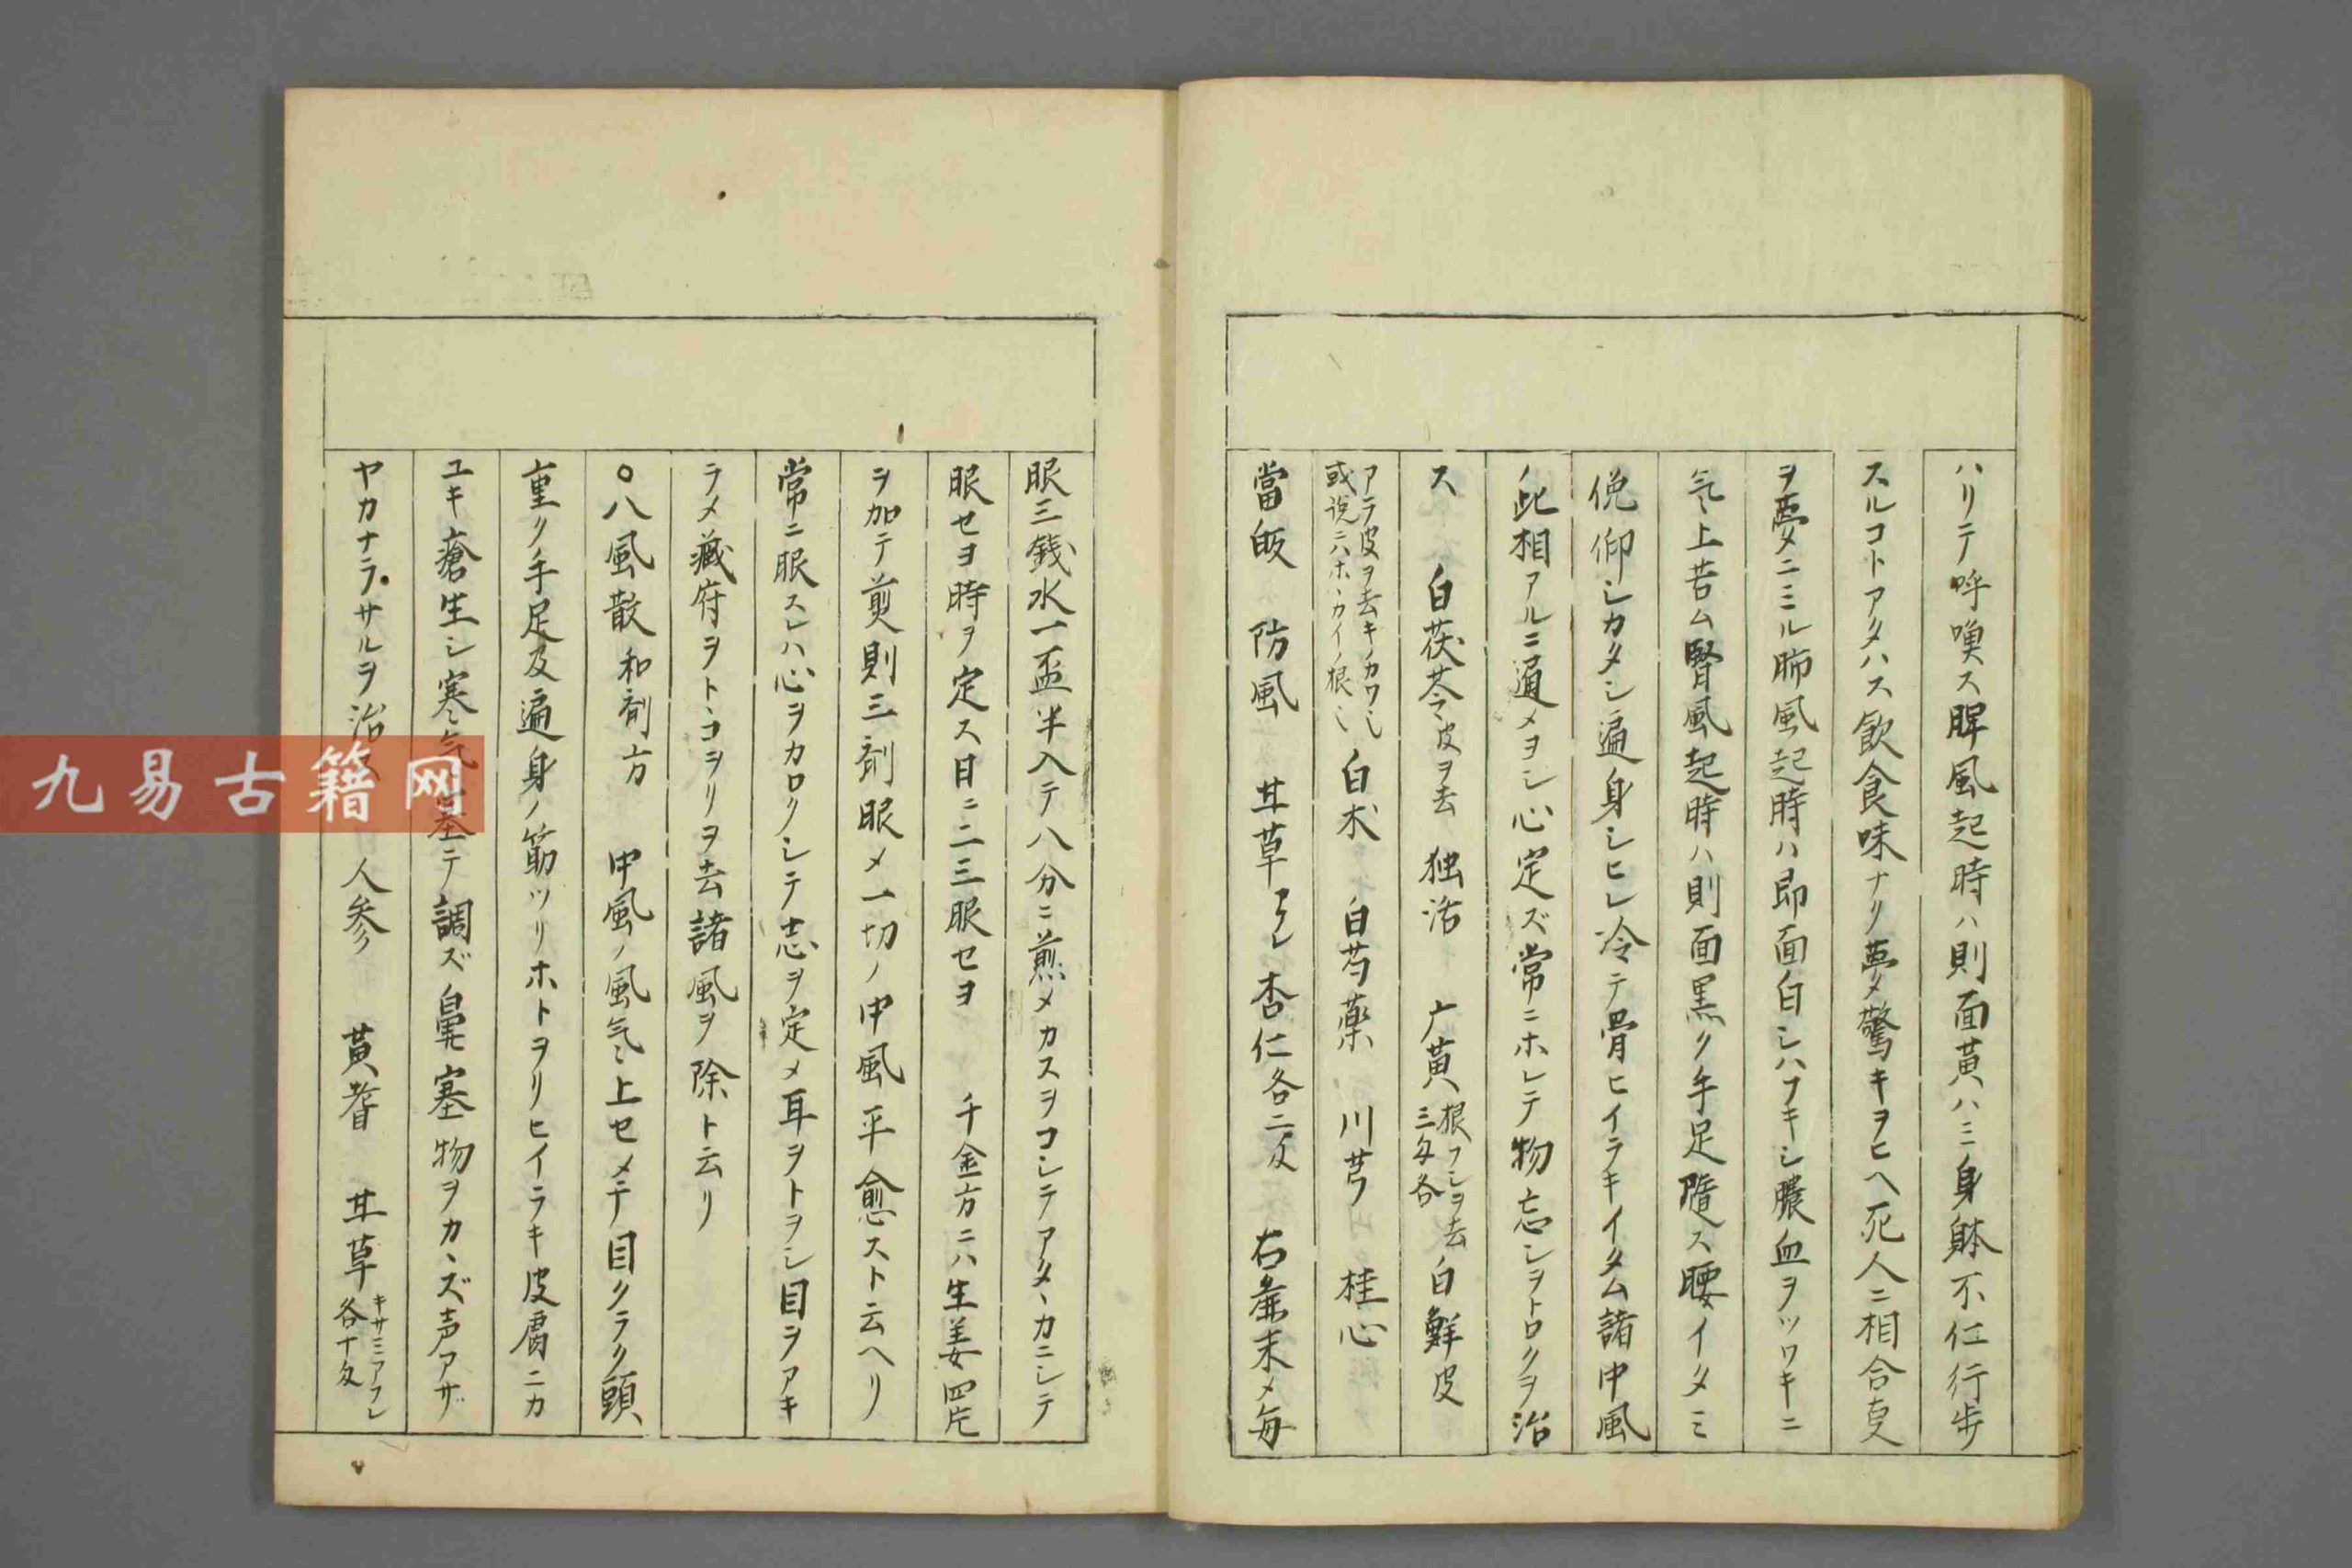 ハリテ呼喚ス脾風起時ハ則面黄ハミ身躰不仁行歩
スルコトアタハス飲食味ナリ夢メ驚キヲヒヘ死人ニ相合支
ヲ夢ニミル肺風起時ハ即面白シハフキシ膿血ヲツワキニ
気上苦ム腎風起時ハ則面黒ク手足隨ス腰イタミ
俛仰シカタシ遍身シヒレ冷テ骨ヒイラキイタム諸中風
ノ此相アルニ通メヨシ心定ズ常ニホレテ物忘シヲトロクヲ治
ス 白茯苓皮ヲ去 独活 广黄根フシヲ去三匁各 白鮮皮
アラ皮ヲ去キノカワ也
或説ニハホヽカイノ根也 白朮 白芍薬 川芎 桂心
當皈 防風 甘草アフレ 杏仁各二匁 右麁末メ毎
服三銭水一盃半入テ八分ニ煎メカスヲコシテアタヽカニシテ
服セヨ時ヲ定ス日ニ二三服セヨ 千金方ニハ生姜四片
ヲ加テ煎則三剤服メ一切ノ中風平愈スト云ヘリ
常ニ服スレハ心ヲカロクシテ志ヲ定メ耳ヲトヲシ目ヲアキ
ラメ藏府ヲトヽコヲリヲ去諸風ヲ除ト云リ
○八風散 和剤方 中風ノ風気上セメテ目クラク頭
重ク手足及遍身ノ筋ツリホトヲリヒイラキ皮膚ニカ
ユキ瘡生シ寒気塞テ調ズ鼻塞物ヲカヽズ声アザ
ヤカナラサルヲ治 人参 黄耆 甘草キサミアフレ各十匁
九易古籍网